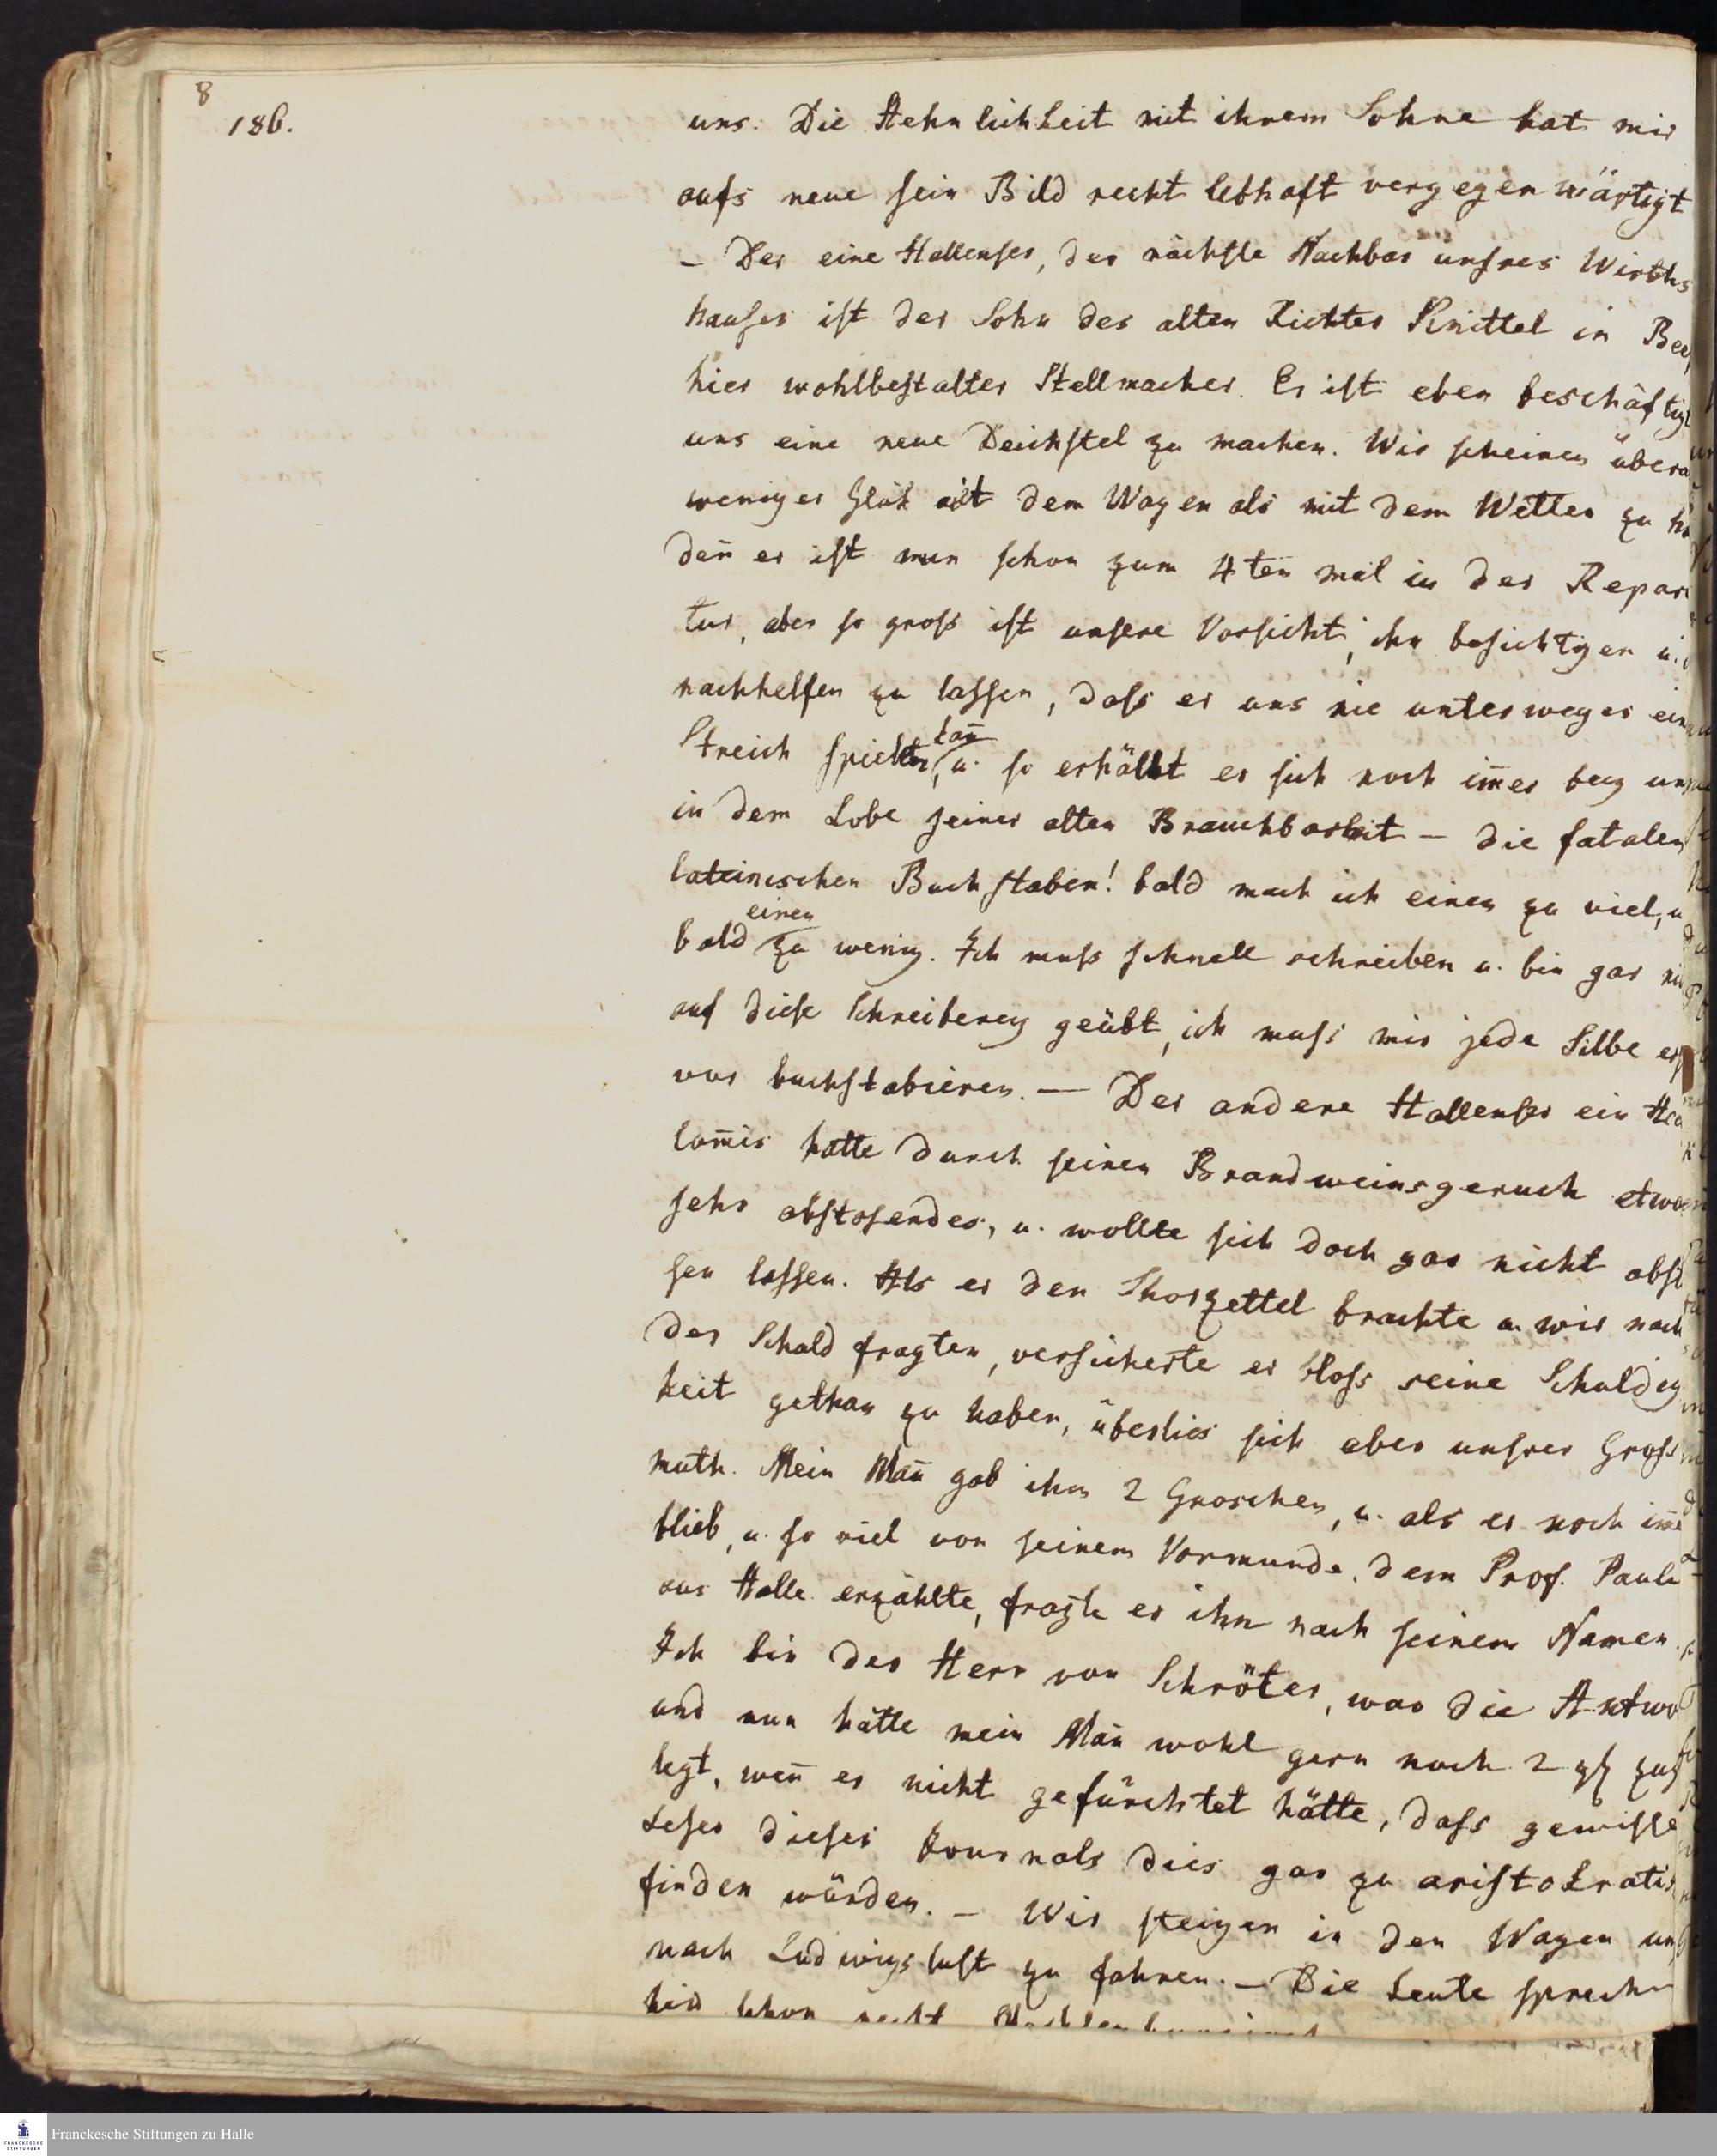 8
186.
uns. Die Aehnlichkeit mit ihrem Sohne hat mir
aufs neue sein Bild recht lebhaft vergegenwärtigt
– Der eine Hallenser, der nächste Nachbar unsres Wirths
hauses ist der Sohn des alten Richter Knittel in
hier wohlbestalter Stellmacher. Er ist eben beschäftigt
uns eine neue Deichstel zu machen. Wir scheinen
weniger Glük mit dem Wagen als mit dem Wetter zu
deñ er ist nun schon zum 4ten mal in der Repara
tur, aber so gross ist unsere Vorsicht, ihn besichtigen u.
nachhelfen zu lassen, dass er uns nie unterweges ein
Streich spielen kañ, u. so erhält er sich noch im̄er bey uns
in dem Lobe seiner alten Brauchbarkeit – die fatalen
lateinischen Buchstaben! bald mach ich einen zu viel, u
bald einen zu wenig. Ich muss schnell schreiben u. bin gar
auf diese Schreiberey geübt, ich muss mir jede Silbe
vor buchstabieren. — Der andere Hallenser ein
com̄is hatte durch seinen Brandweinsgeruch etwas
sehr abstosendes, u. wollte sich doch gar nicht absto
sen lassen. Als er den Thorzettel brachte u. wir nach
der Schuld fragten, versicherte er bloss seine Schuldig
keit gethan zu haben, überlies sich aber unsrer Gross
muth. Mein Mañ gab ihm 2 Groschen, u. als er noch im̄er
blieb, u. so viel von seinem Vormunde, dem Prof. Pauli
aus Halle erzählte, fragte er ihn nach seinem Namen.
Ich bin der Herr von Schröter, war die Antwo
und nun hätte mein Mañ wohl gern noch 2 gl
legt, weñ er nicht gefürchtet hätte, dass gewisse
Leser dieses Journals dies gar zu aristokratis
finden würden. – Wir steigen in den Wagen um
nach Ludwigslust zu fahren. – Die Leute sprechen
hier schon recht Mecklenburgisch
Franckesche Stiftungen zu Halle